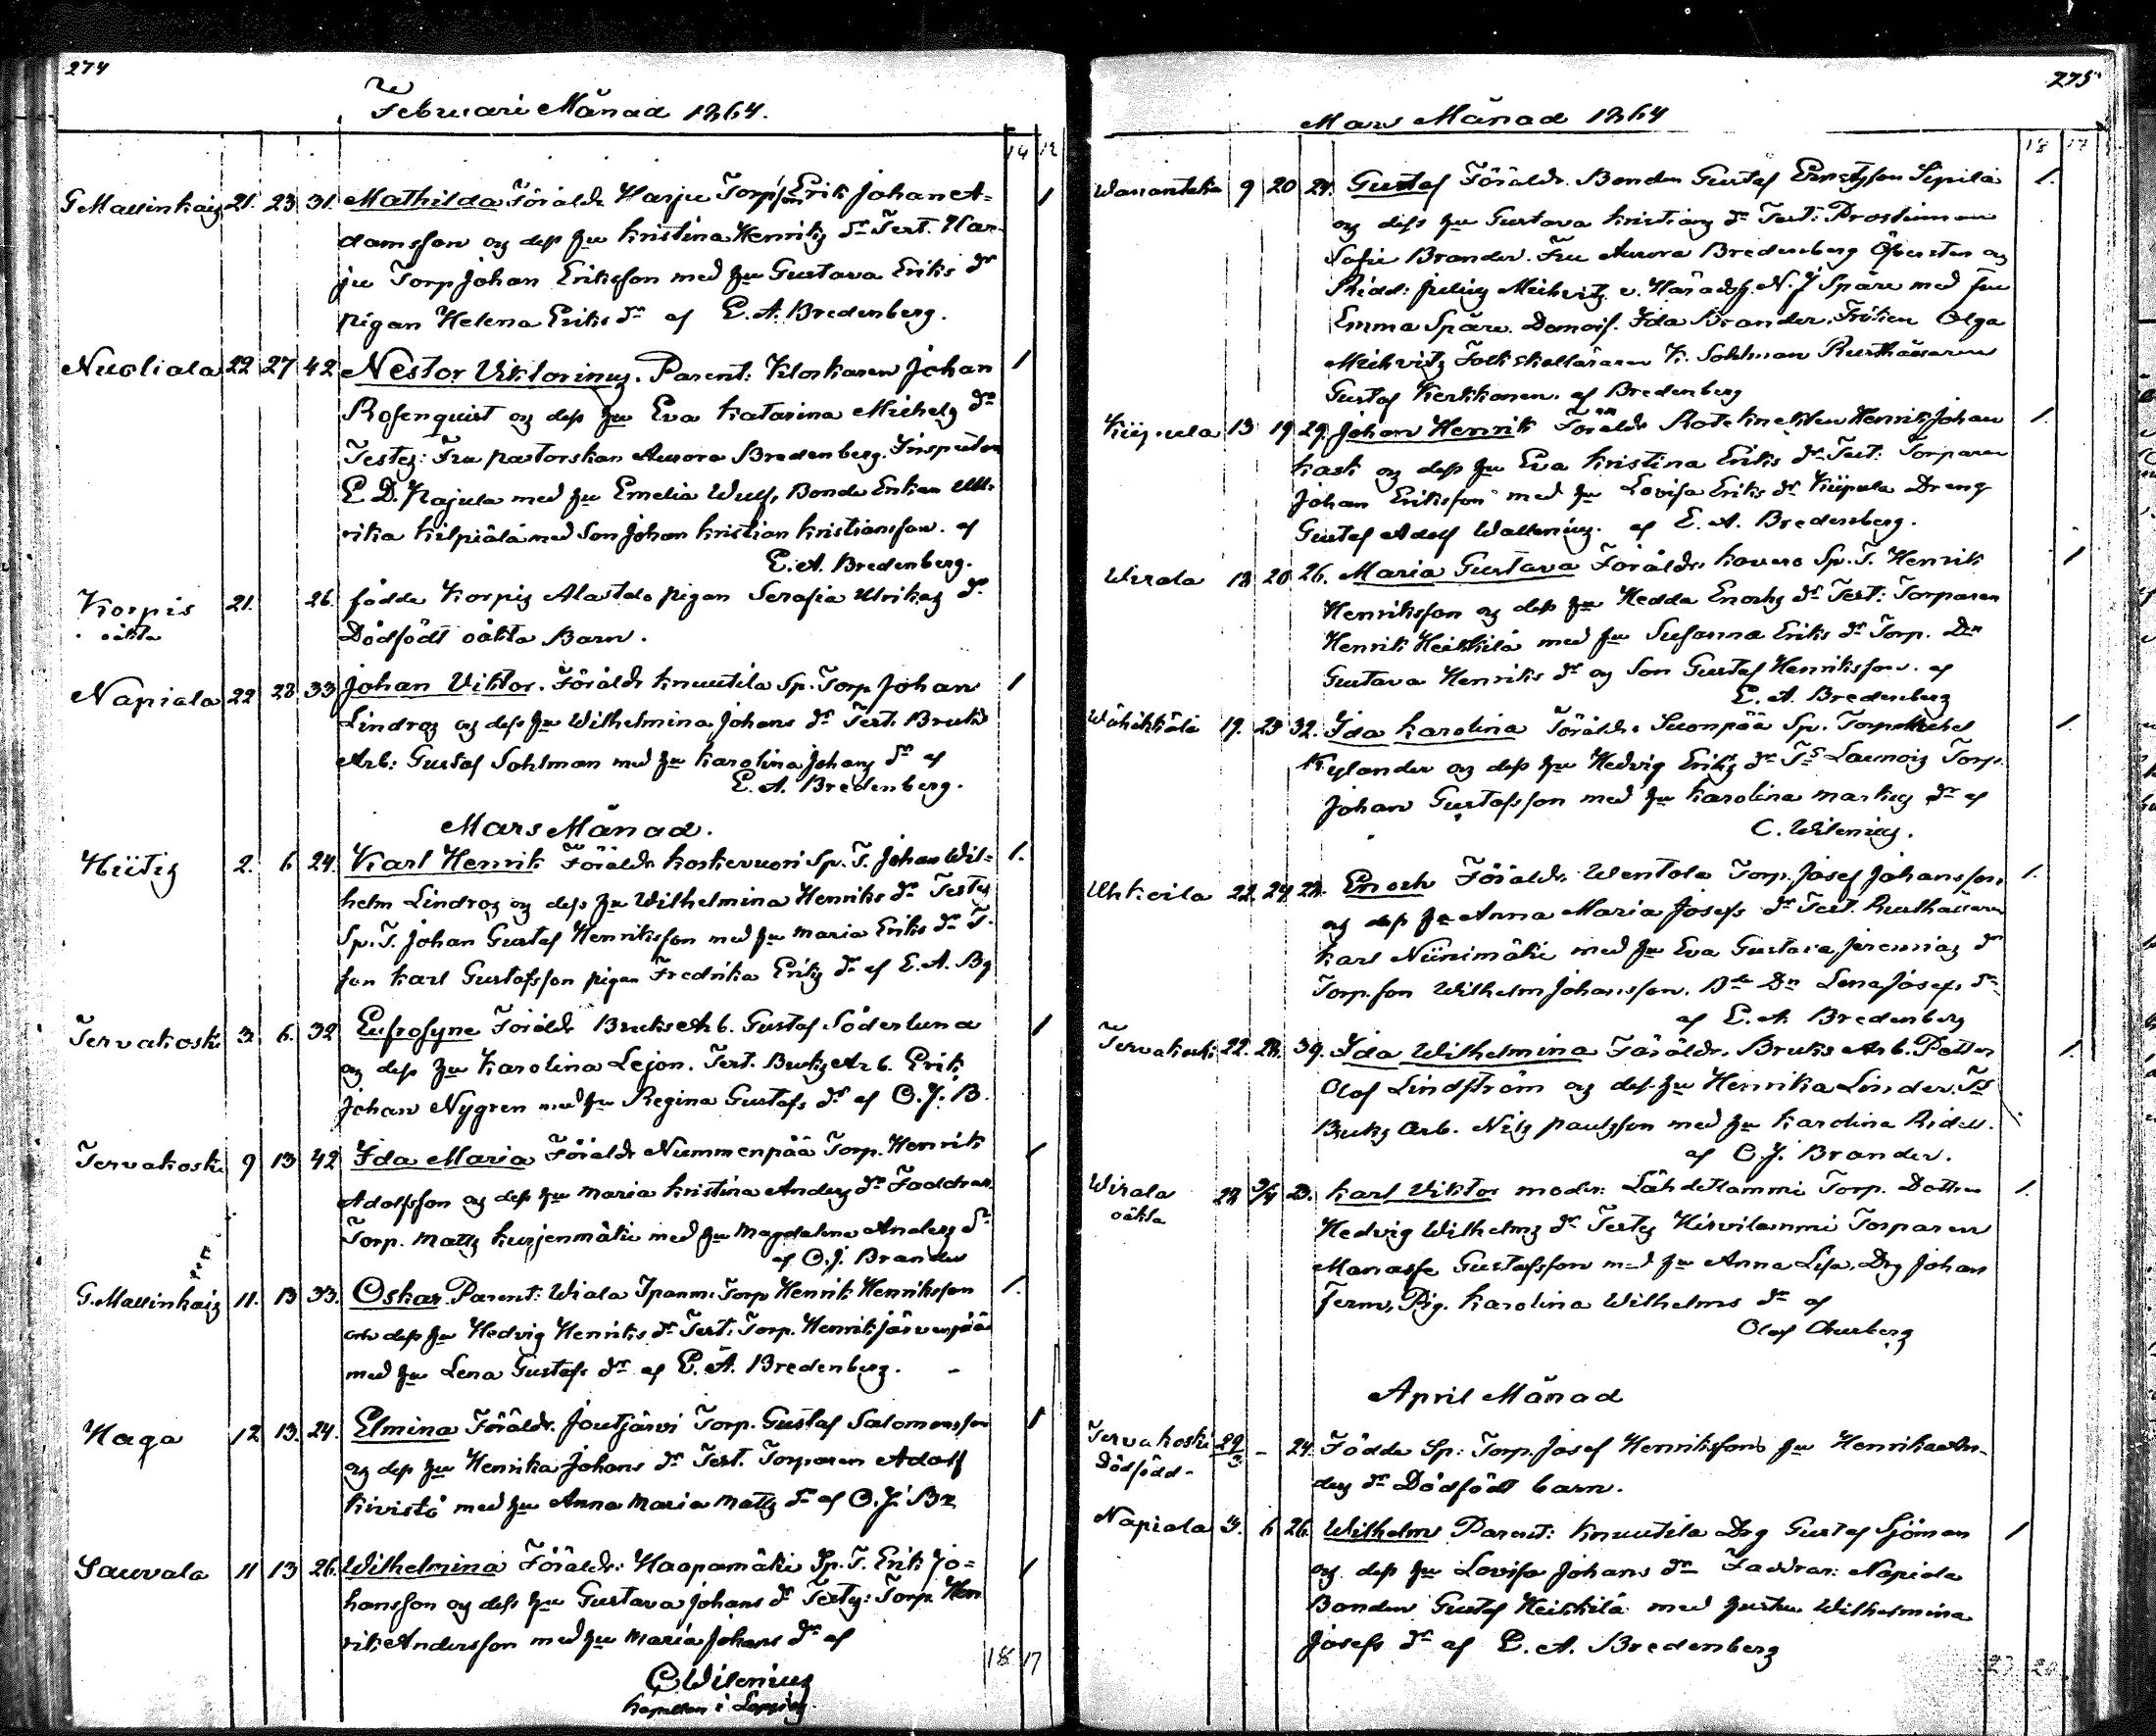 274
Februari Månad 1864.
14 12
G. Mallinkaig 21. 23 31. Mathilda Föräldr Harju Torp. son Erik Johan A=
damsson og dess hu Kristina Henriks dr Test. Har-
ju Torp Johan Eriksson med hu Gustava Eriks dr
pigan Helena Eriks dr af E. A. Bredenberg. 1
Nuoliala 22 27 42 Nestor Viktorinus. Parent: Klockaren Johan 1
Rosenquist og dess hu Eva Katarina Michels dr
Testes: Fru pastorskan Aurora Bredenberg. Inspektor
E. D. Kajula med hu Emelia Wulf, Bonde Enkan Ul-
rika Kilpiälä med Son Johan Kristian Kristiansson. af
E. A. Bredenberg.
Korpis 21. 26. födde Korpis Alastalo pigan Serafia Ulrikas dr
oäkta Dödfödt oäkta Barn.
Napiala 22 28 33 Johan Viktor. Föräldr Knuutila Sp. Torp Johan 1
Lindros og dess hu Wilhelmina Johans dr Test. Bruks
Arb: Gustaf Sohlman med hu Karolina Johans dr af
E. A. Bredenberg.
Mars Månad.
Hiitis 2. 6 24. Karl Henrik Föräldr Koskevuori Sp. T. Johan Wil= 1.
helm Lindros og dess hu Wilhelmina Henriks dr Testes
Sp. T. Johan Gustaf Henriksson med hu Maria Eriks dr T.
son Karl Gustafsson pigan Fredrika Eriks dr af E. A. Bg
Tervakoski 3. 6. 32 Eufrosyne Föräldr Bruks Arb. Gustaf Söderlund 1
og dess hu Karolina Lejon. Test. Bruks Arb. Erik
Johan Nygren med hu Regina Gustafs dr af O. J. B.
Tervakoski 9 13 42 Ida Maria Föräldr Nummenpää Torp. Henrik 1
Adolfsson og dess hu Maria Kristina Anders dr Faddrar
Torp. Matts Kurjenmäki med hu Magdalena Anders dr
af O. J. Brander
G. Mallinkaig 11. 13 33. Oskar. Parent: Wiala Ipanm. Torp Henrik Henriksson 1.
och dess hu Hedvig Henriks dr Test: Torp. Henrik Järvenpää
med hu Lena Gustafs dr af E. A. Bredenberg. -
Haga 12 13. 24. Elmina Föräldr. Joutjärvi Torp. Gustaf Salomonsson 1
og dess hu Henrika Johans dr Test. Torparen Adolf
Kivistö med hu Anna Maria Matts dr af O. J. Br
Sauvala 11 13 26. Wilhelmina Föräldr: Haapamäki Sp. T. Erik Jo= 1
hansson og dess hu Gustava Johans dr Testes: Torp. Hen
rik Andersson med hu Maria Johans dr af
C Wilenius
Kapellan i Loppis.
18 17
275
Mars Månad 1864
18 17
Wanantaka 9 20 24. Gustaf Föräldr. Bonden Gustaf Ernstsson Sipilä 1.
og dess hu Gustava Kristians dr Test: Prostinnan
Sofie Brander. Fru Aurora Bredenberg Öfversten og
Ridd: Julius v. Häradsh. N. J Spåre med fru
Emma Spåre. Demois. Ida Brander. Fröken Olga
Folkskolläraren K. Sohlman Rusthållaren
Gustaf Kerkkonen. af Bredenberg
Kiipula 13 19 29. Johan Henrik Föräldr Roteknekten Henrik Johan 1.
Kask og dess hu Eva Kristina Eriks dr Test: Torparen
Johan Eriksson med hu Lovisa Eriks dr Kiipula Dreng
Gustaf Adolf Wallenius. af E. A. Bredenberg.
Wirala 13 20 26. Maria Gustava Föräldr. Kovero Sp. T. Henrik 1
Henriksson og dess hu Hedda Enochs dr Test: Torparen
Henrik Heikkilä med hu Susanna Eriks dr Torp. Dr
Gustava Henriks dr og Son Gustaf Henriksson. af
E. A. Bredenberg
Wähikkälä 19. 23 32. Ida Karolina Föräldr. Suonpää Sp. Torp Michel 1.
Kylander og dess hu Hedvig Eriks dr Ts Launois Torp.
Johan Gustafsson med hu Karolina Markus dr af
C. Wilenius.
Uhkoila 22. 24 28. Enoch Föräldr. Wentola Torp. Josef Johansson 1.
og dess hu Anna Maria Josefs dr Test. Rusthållaren
Karl Niinimäki med hu Eva Gustava Jeremias dr
Torp. son Wilhelm Johansson. Dr Lena Josefs dr
af E. A. Bredenberg
Tervakoski 22. 28. 39. Ida Wilhelmina Föräldr. Bruks Arb. Petter 1.
Olof Lindström og dess hu Henrika Linder. Ts
Bruks Arb. Nils Paulsson med hu Karolina Ridell.
af O. J. Brander.
Wirala 28 3/4 23. Karl Viktor moder: Lähdetlammi Torp. Dottren 1.
oäkta Hedvig Wilhelms dr Testes Hirvilammi Torparen
Manasse Gustafsson med hu Anna Lisa, Drg Johan
Ferm, Pig. Karolina Wilhelms dr af
Olof
April Månad
Tervakoski 29/3 - 24. Födde Sp. Torp. Josef Henrikssons hu Henrika An-
Dödfödd - ders dr Dödfödt barn.
Napiala 3. 6 26. Wilhelm Parent: Knuutila Drg Gustaf Sjöman 1
og dess hu Lovisa Johans dr Faddrar: Napiala
Bonden Gustaf Heikkilä med hustru Wilhelmina
Josefs dr af E. A. Bredenberg
23 20